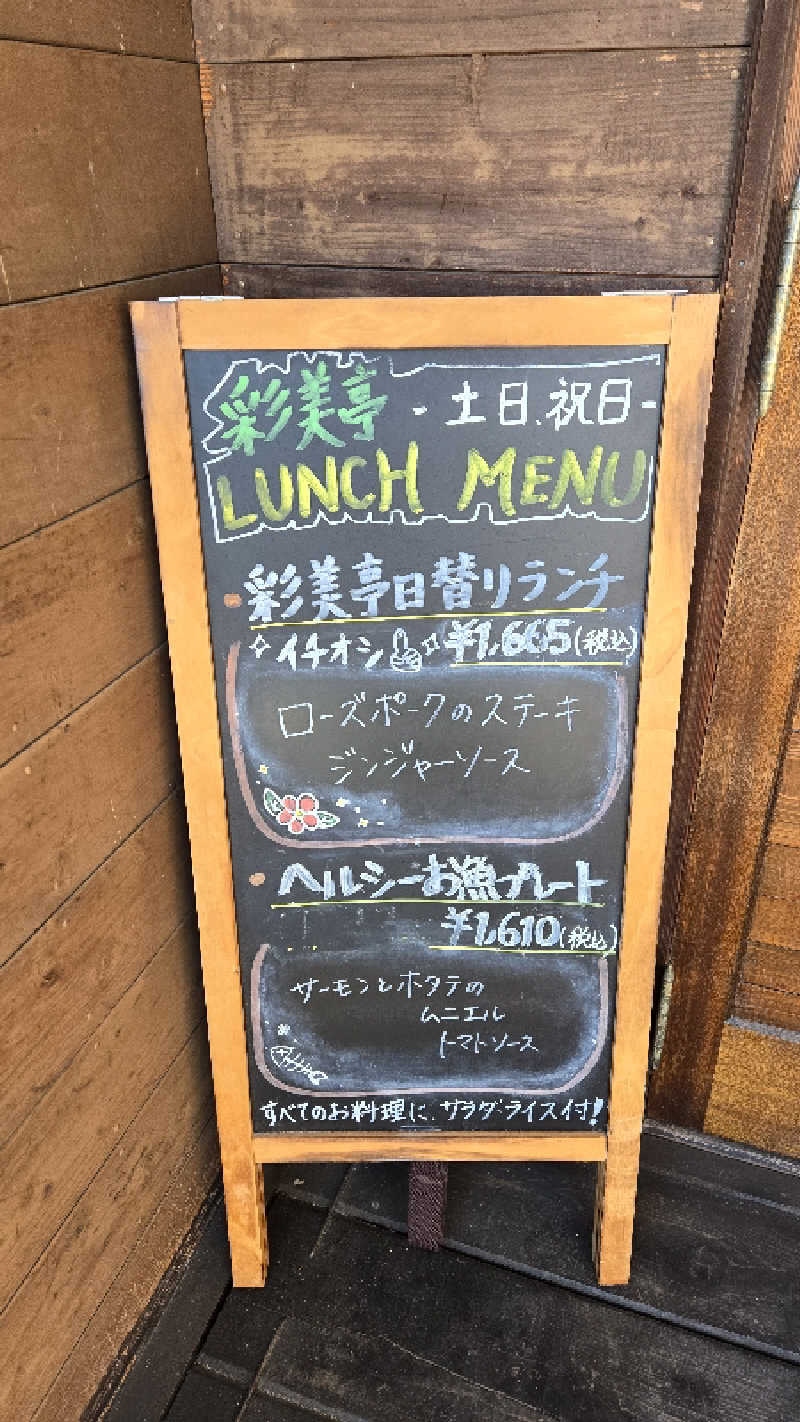 彩美亭 -土日、祝日-
LUNCH MENU
彩美亭日替りランチ
イチオシ ¥1,665(税込)
ローズポークのステーキ
ジンジャーソース
ヘルシーお魚プレート
¥1,610(税込)
サーモンとホタテの
ムニエル
トマトソース
すべてのお料理に、サラダ・ライス付!